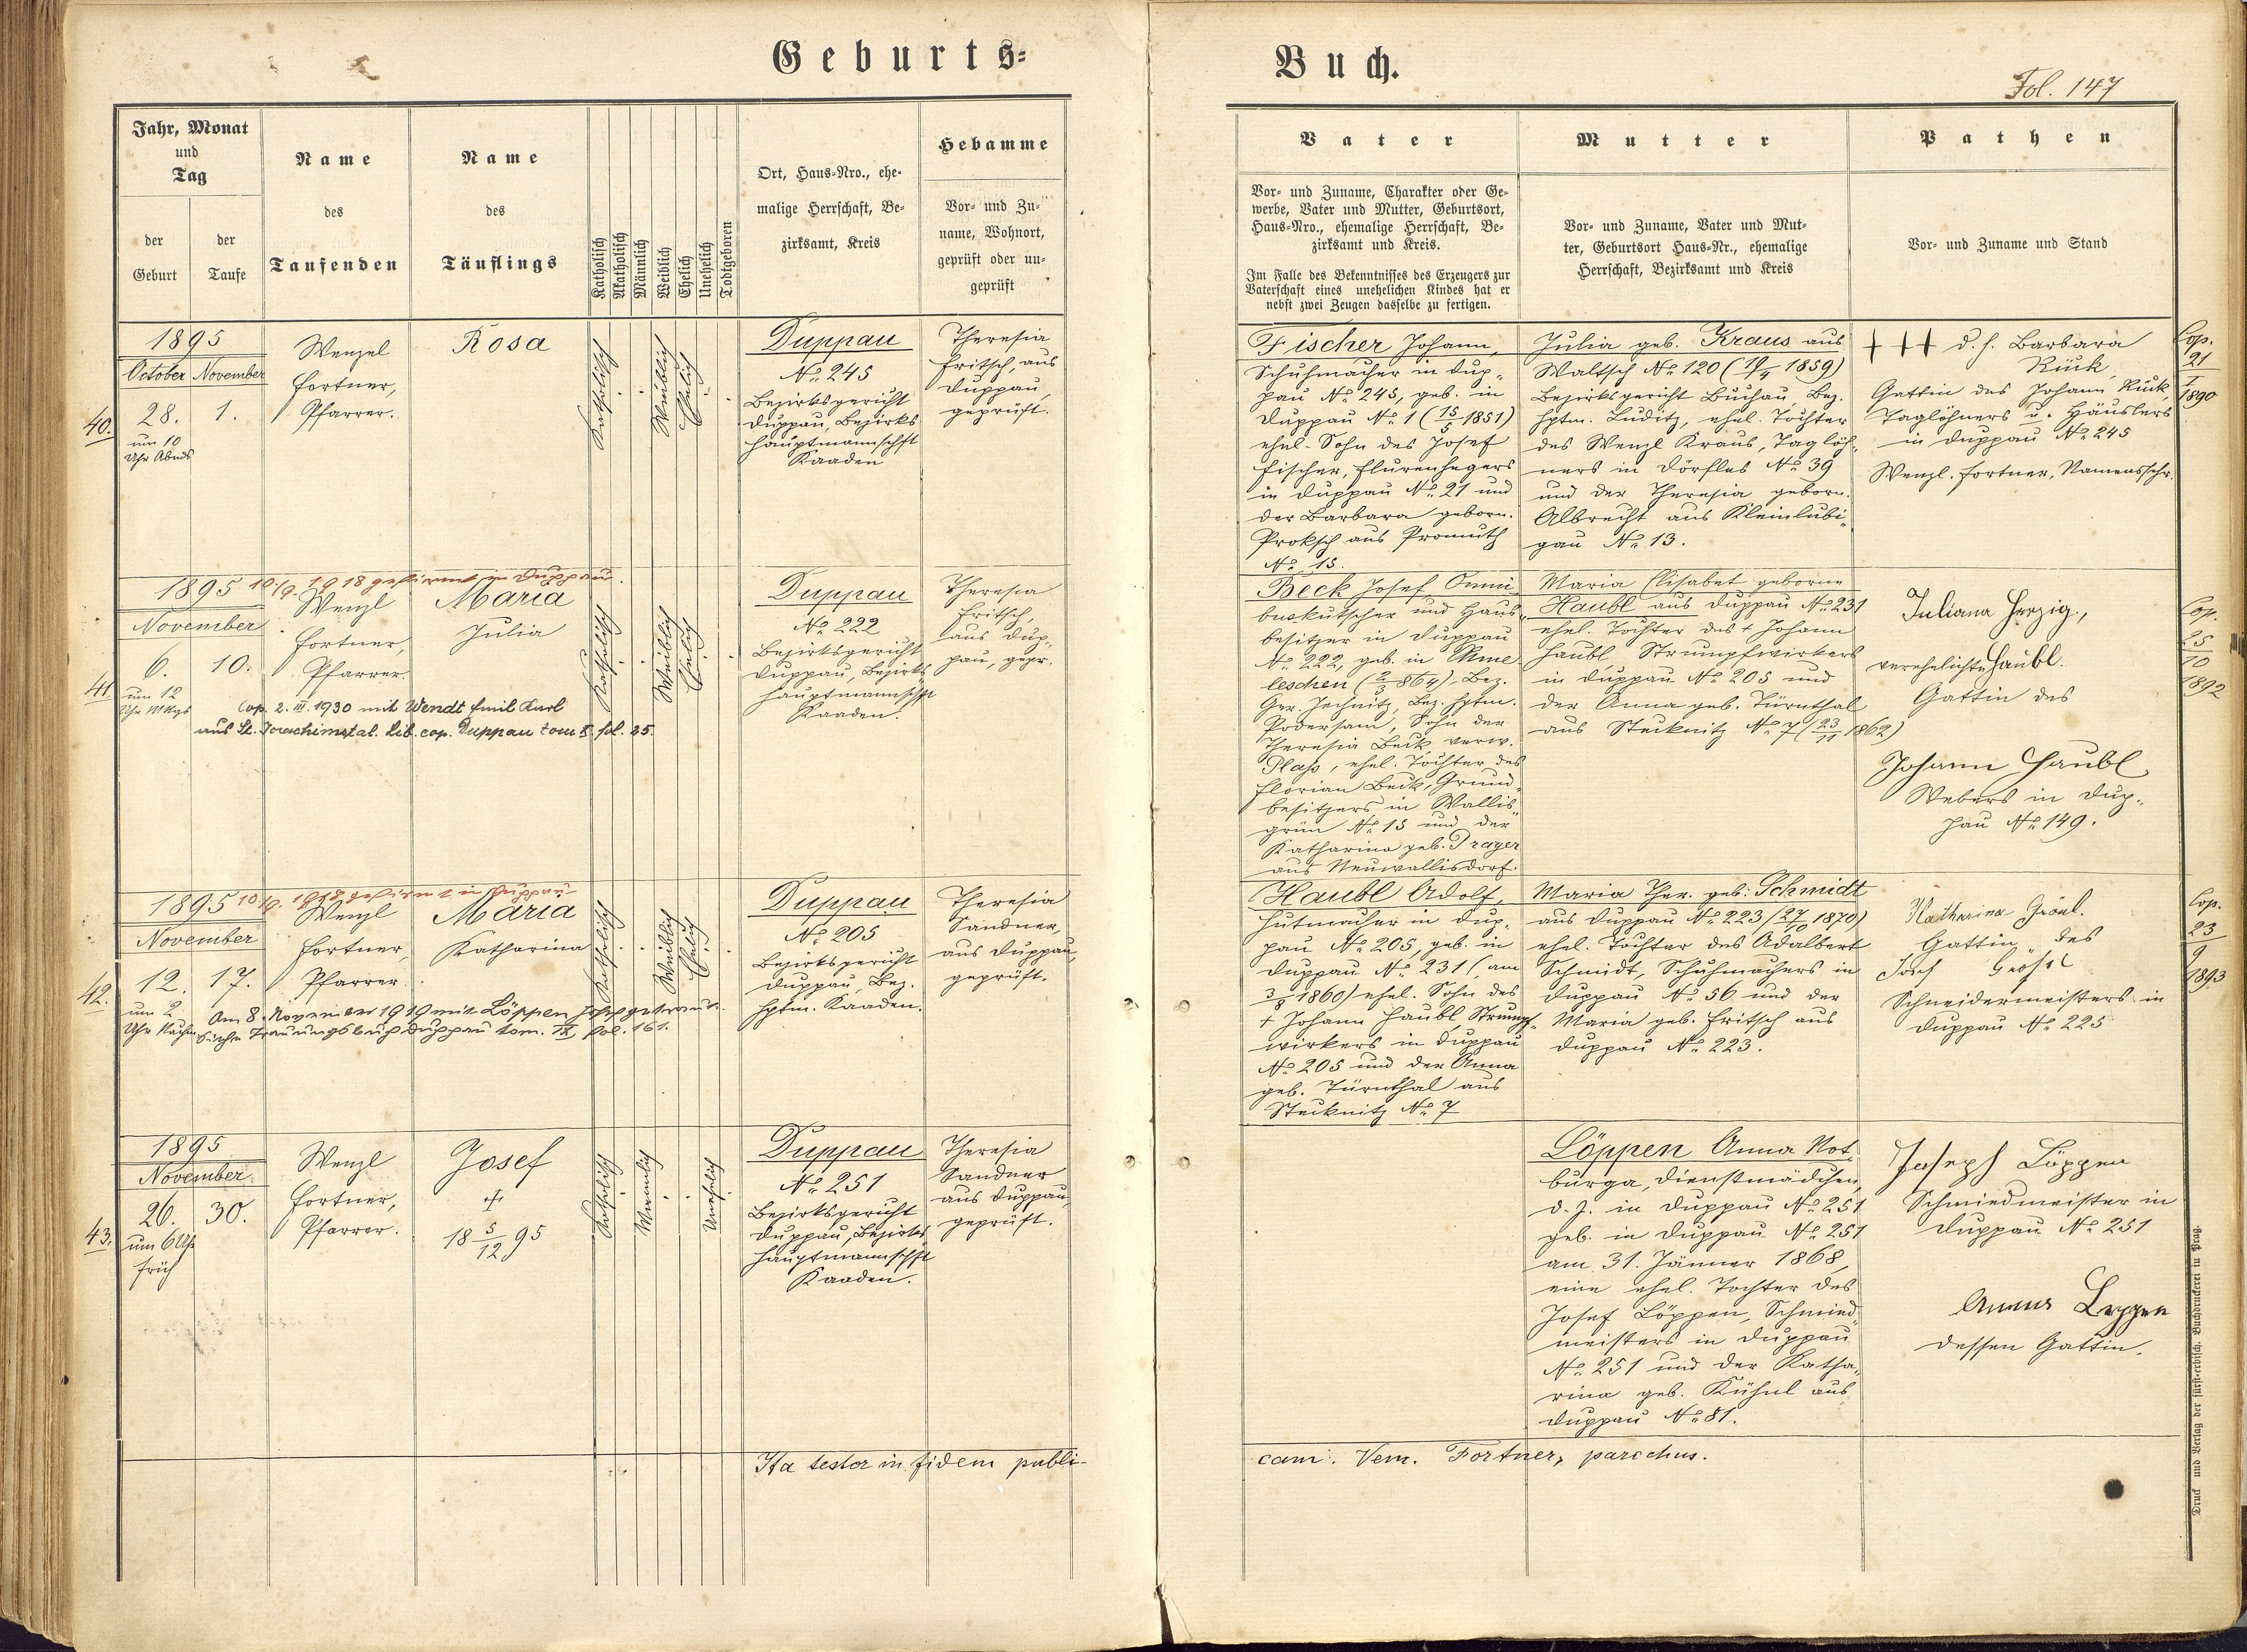 Geburts=
Buch.
Fol. 147
Jahr, Monat
und
Tag
der
Geburt
der
Taufe
Name
des
Taufenden
Name
des
Täuflings
Katholisch
Akatholisch
Männlich
Weiblich
Ehelich
Unehelich
Todtgeboren
Ort, Haus=Nro., ehe=
malige Herrschaft, Be=
zirksamt, Kreis
Hebamme
Vor= und Zu=
name, Wohnort,
geprüft oder un=
geprüft
Vater
Vor= und Zuname, Charakter oder Ge=
werbe, Vater und Mutter, Geburtsort,
Haus=Nro., ehemalige Herrschaft, Be=
zirksamt und Kreis.
Im Falle des Bekenntnisses des Erzeugers zur
Vaterschaft eines unehelichen Kindes hat er
nebst zwei Zeugen dasselbe zu fertigen.
Mutter
Vor= und Zuname, Vater und Mut=
ter, Geburtsort Haus=Nr., ehemalige
Herrschaft, Bezirksamt und Kreis
Pathen
Vor= und Zuname und Stand
40.
1895
October November
28. 1.
um 10
Uhr Abnds
Wenzel
Fortner,
Pfarrer.
Rosa
Katholisch
Weiblich
Ehelich
Duppau
No 245
Bezirksgericht
Duppau, Bezirks
hauptmannschft
Kaaden
Theresia
Fritsch, aus
Duppau,
geprüft.
Fischer Johann,
Schuhmacher in Dup=
pau No 245, geb. in
Duppau No 1 (15/5 1851)
ehel. Sohn des Josef
Fischer, Flurenhegers
in Duppau No 21 und
der Barbara geborn.
Proksch aus Promuth
No 15.
Julia geb. Kraus aus
Waltsch No 120 (19/4 1859)
Bezirksgericht Buchau, Bez.
hptm. Luditz, ehel. Tochter
des Wenzl Kraus, Taglöh=
ners in Dörfles No 39
und der Theresia geborn.
Albrecht aus Kleinlubi=
gau No 13.
+++ d. h. Barbara
Rück
Gattin des Johann Rück,
Taglöhners u. Häuslers
in Duppau No 245
Wenzl. Fortner, Namensschr.
Cop.
21
1890
41.
1895
November
6. 10.
um 12
Uhr Mttgs
10./9. 1918 gefirmt in Duppau.
Wenzl
Fortner,
Pfarrer.
Maria
Julia
Cop. 2. III. 1930 mit Wendt Emil Karl
aus St. Joachimstal. Lib. cop. Duppau tom X. fol. 25.
Katholisch
Weiblich
Ehelich
Duppau
No 222
Bezirksgericht
Duppau, Bezirks
hauptmannschft
Kaaden.
Theresia
Fritsch,
aus Dup=
pau, gepr.
Beck Josef Omni=
buskutscher und Haus=
besitzer in Duppau
No 222, geb. in Chme
leschen (2/3 864), Bez.
Ger. Jechnitz, Bez. hptm.
Podersam, Sohn der
Theresia Beck verw.
Plaß, ehel. Tochter des
Florian Beck, Grund=
besitzers in Wallis=
grün No 15 und der
Katharina geb. Prager
aus Neuwallisdorf.
Maria Elisabet geborne
Haubl aus Duppau No 231
ehel. Tochter des + Johann
Haubl Strumpfwirkers
in Duppau No 205 und
der Anna geb. Türnthal
aus Stecknitz No 7 (23/11 1862)
Juliana Herzig,
verehelichte Haubl.
Gattin des
Johann Haubl
Webers in Dup=
pau No 149.
Cop.
25
10
1892
42.
1895
November
12. 17.
um 2
Uhr Nachm
10./9. 1918 gefirmt in Duppau
Wenzl
Fortner,
Pfarrer.
Maria
Katharina
Am 8. November 1919 mit Löppen Josef getraut.
Siehe Trauungsbuch Duppau tom. IX fol. 161.
Katholisch
Weiblich
Ehelich
Duppau
No 205
Bezirksgericht
Duppau, Bez.
hptm. Kaaden.
Theresia
Sandner,
aus Duppau,
geprüft.
Haubl Adolf,
Hutmacher in Dup=
pau No 205, geb. in
Duppau No 231 (am
3/8 1860) ehel. Sohn des
+ Johann Haubl Strumpf=
wirkers in Duppau
No 205 und der Anna
geb. Türnthal aus
Stecknitz No 7
Maria Ther. geb. Schmidt
aus Duppau No 223 (27/10 1870)
ehel. Tochter des Adalbert
Schmidt, Schuhmachers in
Duppau No 56 und der
Maria geb. Fritsch aus
Duppau No 223.
Katharina Grösl.
Gattin des
Josef Grösl
Schneidermeisters in
Duppau No 225
Cop.
23
9
1893
43.
1895
November.
26. 30.
um 6 Uhr
früh
Wenzl
Fortner,
Pfarrer.
Josef
+
18 5/12 95
Katholisch
Männlich
Unehelich
Duppau
No 251
Bezirksgericht
Duppau, Bezirks
hauptmannschft
Kaaden.
Theresia
Sandner
aus Duppau,
geprüft.
Löppen Anna Not=
burga, Dienstmädchen,
d. Z. in Duppau No 251
geb. in Duppau No 251
am 31. Jänner 1868,
eine ehel. Tochter des
Josef Löppen, Schmied=
meisters in Duppau
No 251 und der Katha=
rina geb. Kühnl aus
Duppau No 81.
Joseph Löppen
Schmiedmeister in
Duppau No 251
Anna Leppen
dessen Gattin.
Ita testor in fidem publi-
cam: Vem. Fortner, parochus.
Druck und Verlag der fürst=erzbisch. Buchdruckerei in Prag.